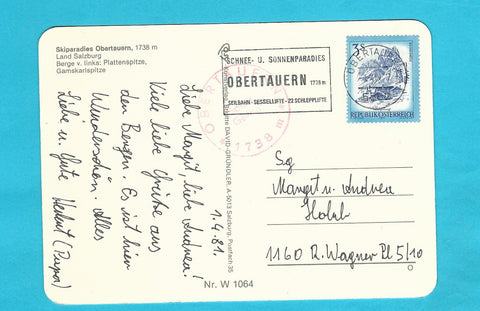 Skiparadies Obertauern, 1738 m
Land Salzburg
Berge v. links: Plattenspitze,
Gamskarlspitze
1.4.81.
Liebe Margit, liebe Andrea!
Viele liebe Grüße aus
den Bergen. Es ist hier
Wunderschön. Alles
Liebe u. Gute
Herbert (Papa)
Nr. W 1064
DAVID-GRÜNDLER, A-5013 Salzburg, Postfach 35
OBERTAUERN
1738 m
SCHNEE- U. SONNENPARADIES
OBERTAUERN 1738 m
SEILBAHN - SESSELLIFTE - 22 SCHLEPPLIFTE
OBERTAUERN
3S
REPUBLIK ÖSTERREICH
Sg
Margit u. Andrea
1160 R. Wagner Pl 5/10